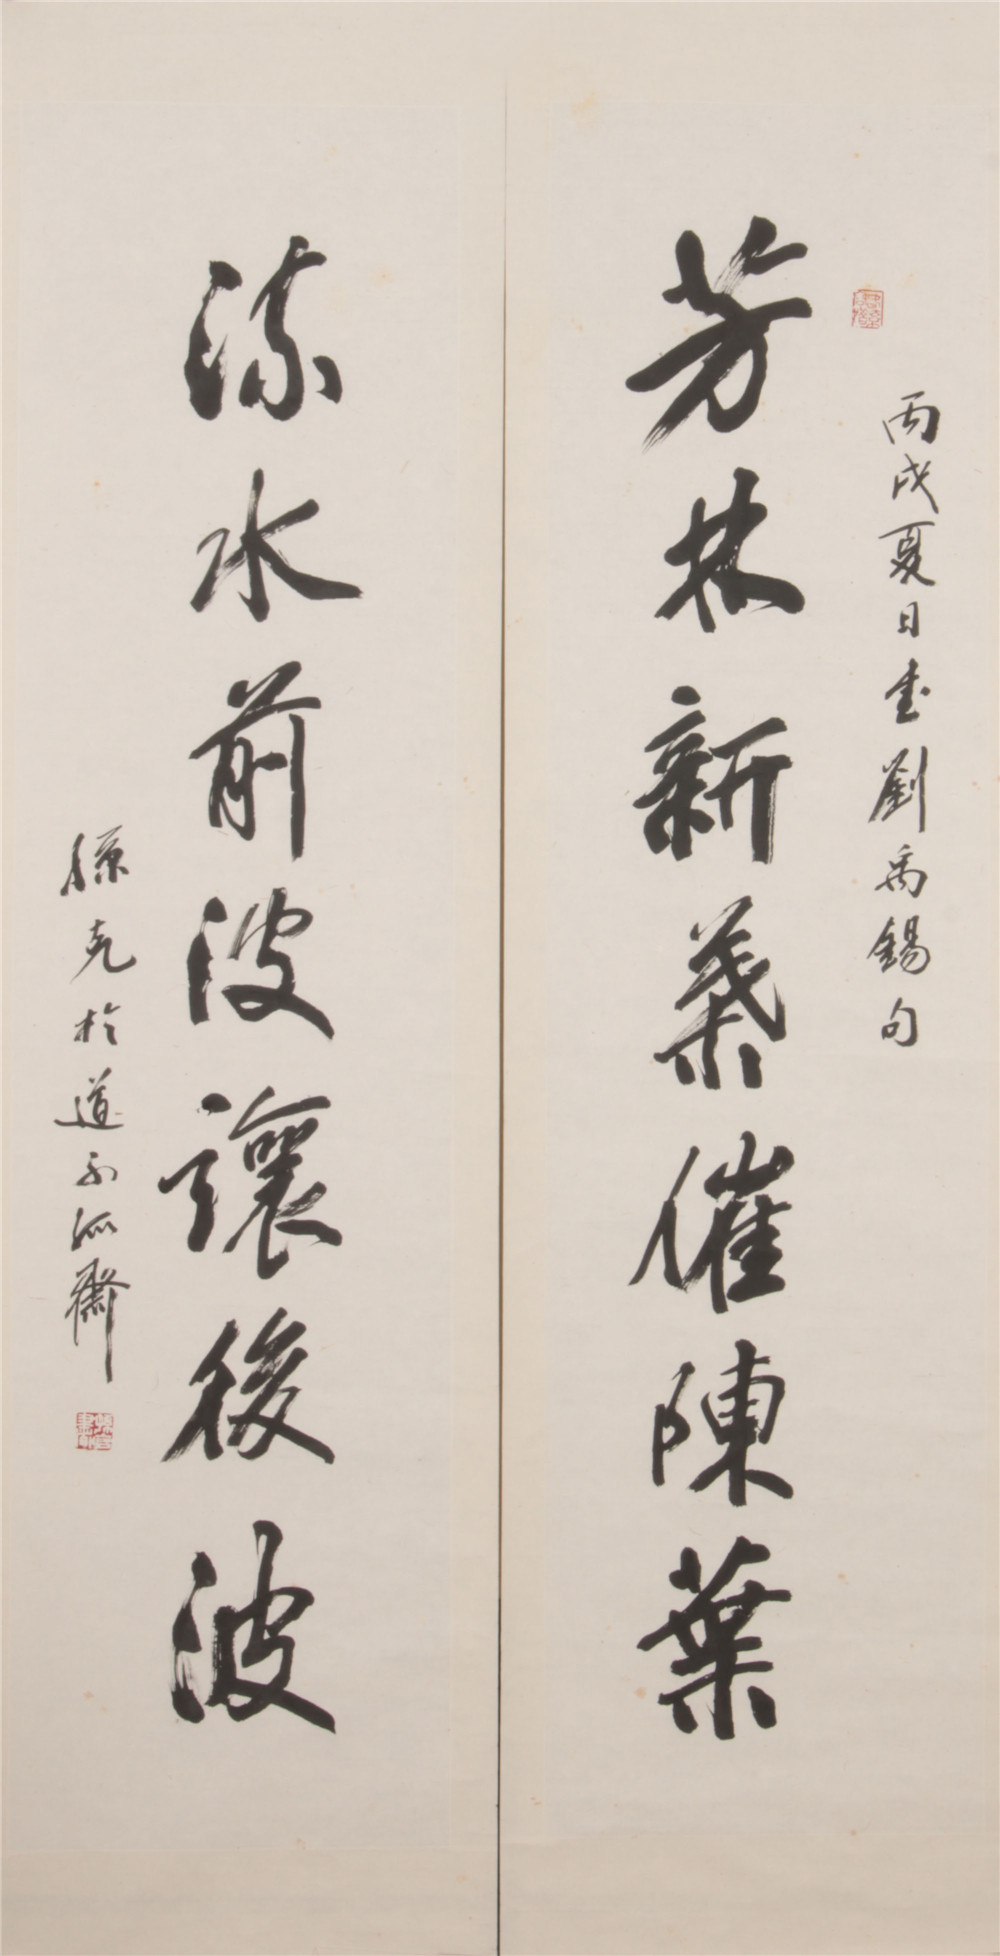 丙戌夏日書劉禹錫句
芳林新葉催陳葉
流水前波讓後波
孫克於道不孤齋